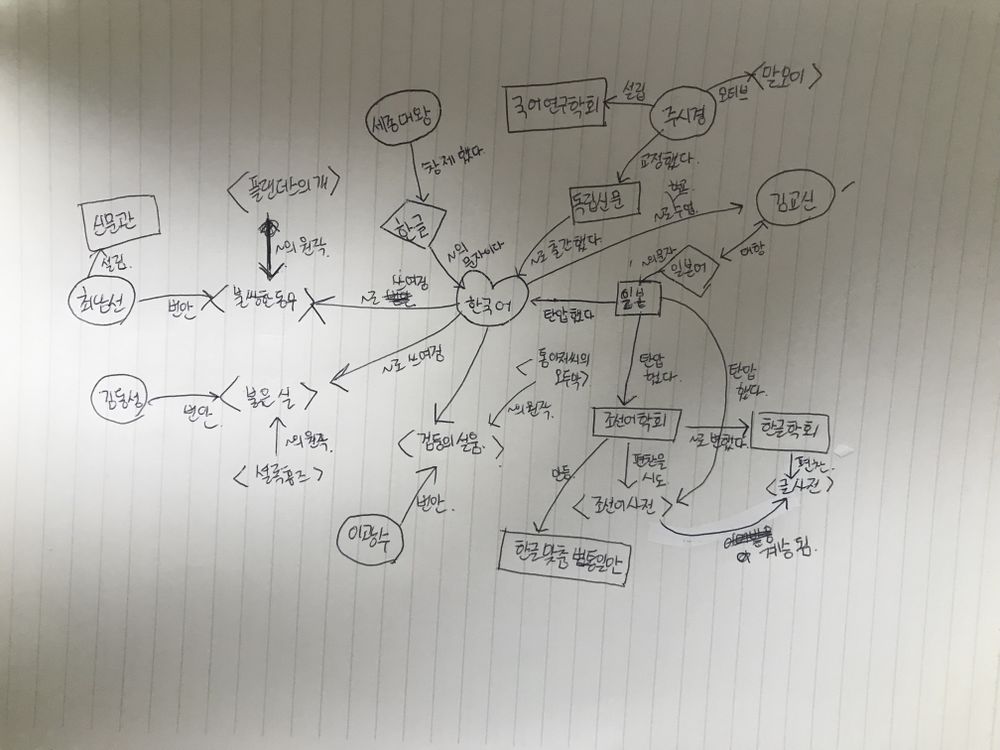 세종대왕
창제했다
한글
~의
문자이다
한국어
국어연구학회
설립
주시경
모티브
<말모이>
교정했다.
독립신문
~로 출간했다.
학교
~로 수업
김교신
대항
일본어
~의 문자
일본
탄압했다
<플랜더스의 개>
~의 원작
신문관
설립.
최남선
번안
<불쌍한 동무>
~로
쓰여짐
~로 쓰여짐
김동성
번안
<붉은 실>
~의 원작
<셜록홈즈>
<톰아저씨의
오두막>
~의 원작.
<검둥의 설움>
번안.
이광수
탄압
했다.
탄압
했다.
조선어학회
~로 변했다.
한글학회
편찬
<큰사전>
편찬을
시도
<조선어사전>
만듦
한글 맞춤법통일안
계승됨.